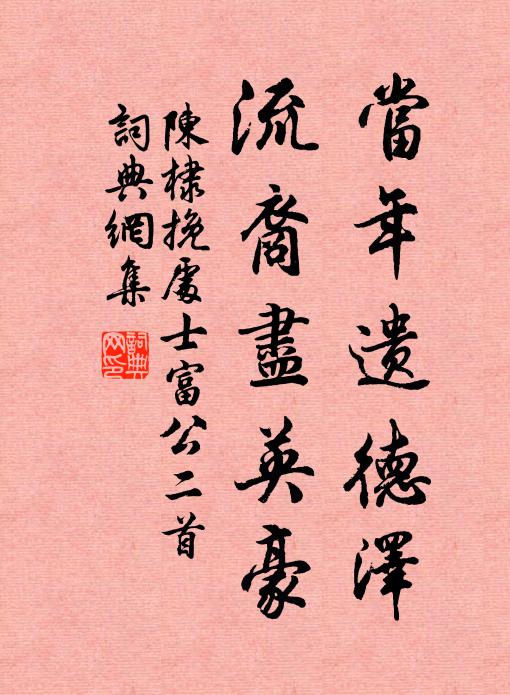 當年遺德澤
流裔盡英豪
陳棣挽處士富公二首
詞典網集
詞典
网印